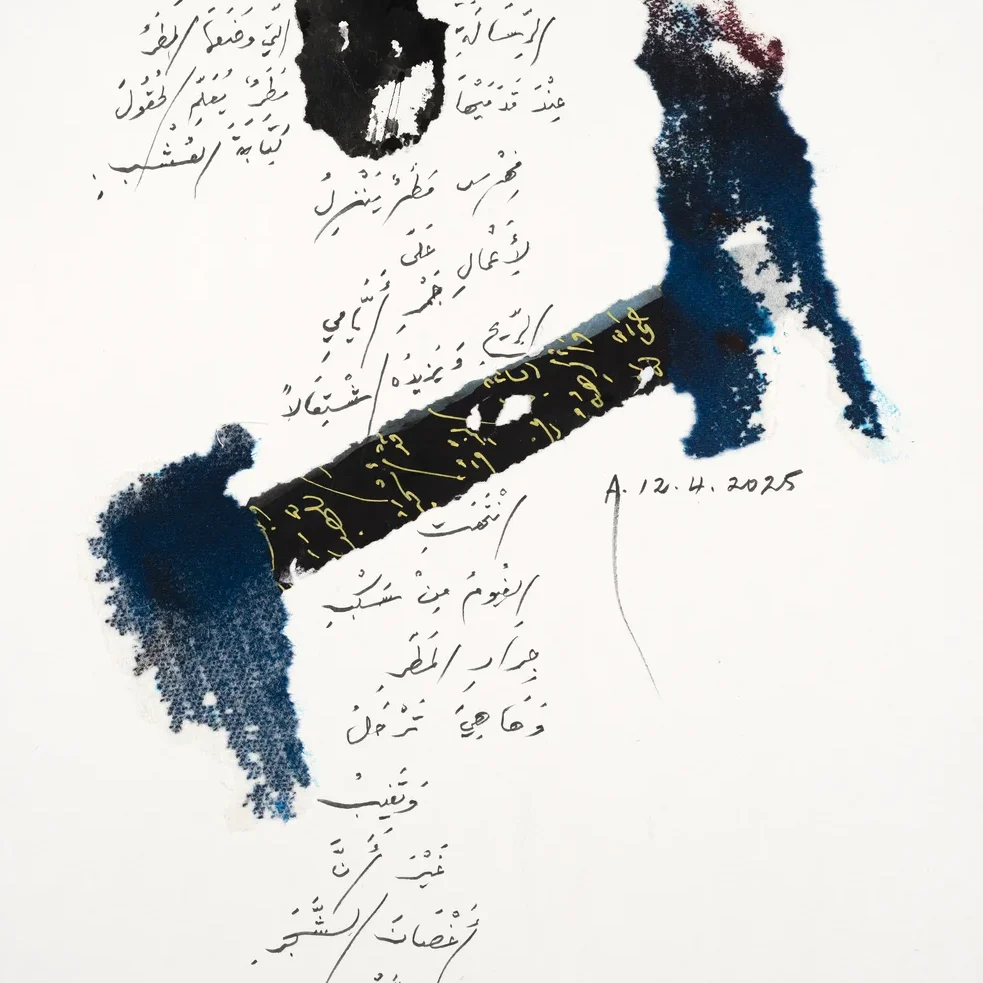 الرِّسَالَةِ الَّتِي وَضَعَهَا المَطَرُ
عِنْدَ قَدَمَيْهَا مَطَرٌ يُعَلِّمُ الحُقُولَ
كِتَابَةَ العُشْبِ.
فِهْرِس مَطَرٌ يَنْزِلُ
لِأَعْمَالِ عَلَى
جَمْرِ أَيَّامِي
الرِّيحِ
وَيَزِيدُه اشْتِعَالاً
A. 12.4.2025
انْتَهَتْ
الغُيُومُ مِنْ سَكْبِ
جِرَارِ المَطَرِ
وَهَا هِيَ تَرْحَلُ
وَتَغِيبُ
غَيْرَ أَنَّ
أَغْصَانَ الشَّجَرِ